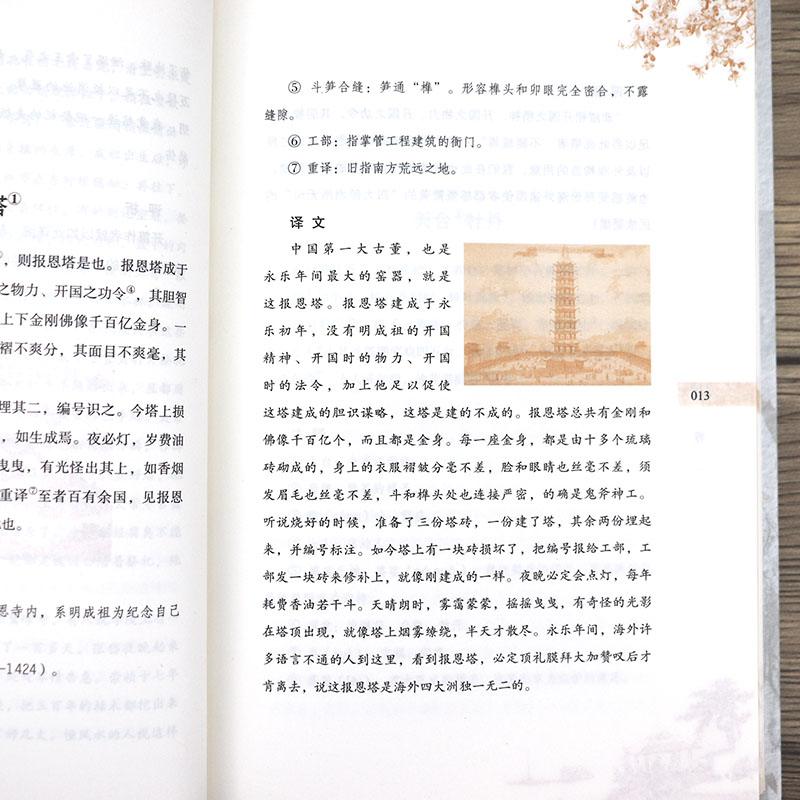 塔①
，则报恩塔是也。报恩塔成于
之物力、开国之功令④，其胆智
上下金刚佛像千百亿金身。一
褶不爽分，其面目不爽毫，其
埋其二，编号识之。今塔上损
，如生成焉。夜必灯，岁费油
曳曳，有光怪出其上，如香烟
重译⑦至者百有余国，见报恩
也。
恩寺内，系明成祖为纪念自己
-1424）。
⑤ 斗笋合缝：笋通“榫”。形容榫头和卯眼完全密合，不露
缝隙。
⑥ 工部：指掌管工程建筑的衙门。
⑦ 重译：旧指南方荒远之地。
译文
中国第一大古董，也是
永乐年间最大的窑器，就是
这报恩塔。报恩塔建成于永
乐初年，没有明成祖的开国
精神、开国时的物力、开国
时的法令，加上他足以促使
这塔建成的胆识谋略，这塔是建的不成的。报恩塔总共有金刚和
佛像千百亿个，而且都是金身。每一座金身，都是由十多个琉璃
砖砌成的，身上的衣服褶皱分毫不差，脸和眼睛也丝毫不差，须
发眉毛也丝毫不差，斗和榫头处也连接严密，的确是鬼斧神工。
听说烧好的时候，准备了三份塔砖，一份建了塔，其余两份埋起
来，并编号标注。如今塔上有一块砖损坏了，把编号报给工部，工
部发一块砖来修补上，就像刚建成的一样。夜晚必定会点灯，每年
耗费香油若干斗。天晴朗时，雾霭蒙蒙，摇摇曳曳，有奇怪的光影
在塔顶出现，就像塔上烟雾缭绕，半天才散尽。永乐年间，海外许
多语言不通的人到这里，看到报恩塔，必定顶礼膜拜大加赞叹后才
肯离去，说这报恩塔是海外四大洲独一无二的。
013